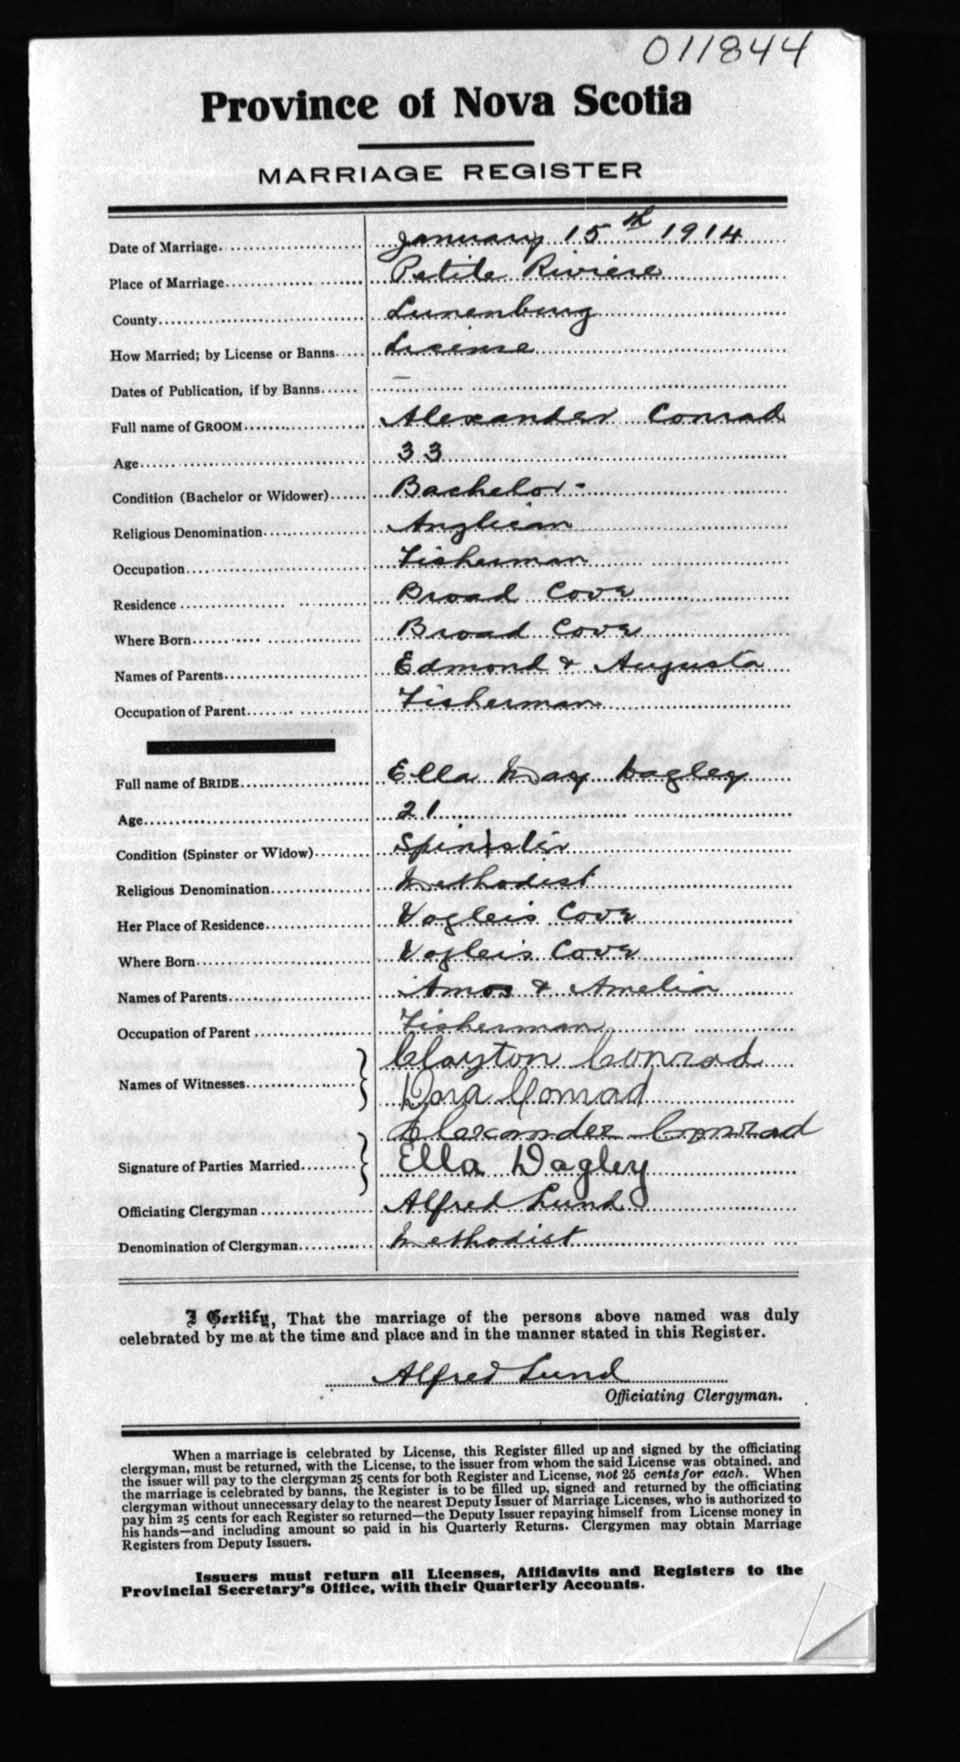 011844
Province of Nova Scotia
MARRIAGE REGISTER
Date of Marriage January 15th 1914
Place of Marriage Petite Riviere
County Lunenburg
How Married; by License or Banns License
Dates of Publication, if by Banns —
Full name of GROOM Alexander Conrad
Age 33
Condition (Bachelor or Widower) Bachelor -
Religious Denomination Anglican
Occupation Fisherman
Residence Broad Cove
Where Born Broad Cove
Names of Parents Edmond & Augusta
Occupation of Parent Fisherman
Full name of BRIDE Ella May Dagley
Age 21
Condition (Spinster or Widow) Spinster
Religious Denomination Methodist
Her Place of Residence Vogleis Cove
Where Born Vogleis Cove
Names of Parents Amos & Amelia
Occupation of Parent Fisherman
Names of Witnesses Clayton Conrad
Dora Conrad
Alexander Conrad
Signature of Parties Married Ella Dagley
Officiating Clergyman Alfred Lund
Denomination of Clergyman Methodist
I Certify, That the marriage of the persons above named was duly
celebrated by me at the time and place and in the manner stated in this Register.
Alfred Lund
Officiating Clergyman.
When a marriage is celebrated by License, this Register filled up and signed by the officiating
clergyman, must be returned, with the License, to the issuer from whom the said License was obtained, and
the issuer will pay to the clergyman 25 cents for both Register and License, not 25 cents for each. When
the marriage is celebrated by banns, the Register is to be filled up, signed and returned by the officiating
clergyman without unnecessary delay to the nearest Deputy Issuer of Marriage Licenses, who is authorized to
pay him 25 cents for each Register so returned—the Deputy Issuer repaying himself from License money in
his hands—and including amount so paid in his Quarterly Returns. Clergymen may obtain Marriage
Registers from Deputy Issuers.
Issuers must return all Licenses, Affidavits and Registers to the
Provincial Secretary's Office, with their Quarterly Accounts.